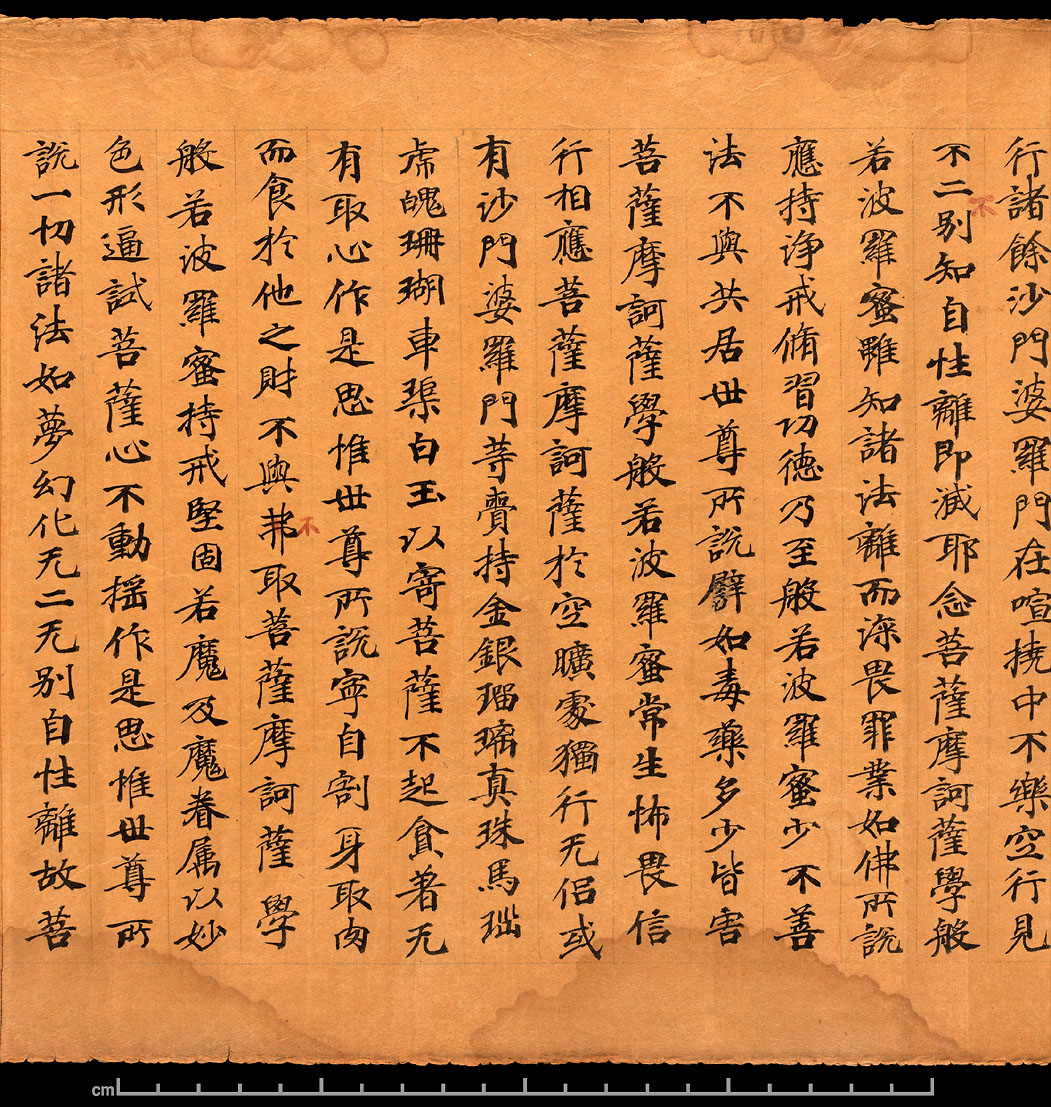 行諸餘沙門婆羅門在喧撓中不樂空行見
不二不别知自性離即滅耶念菩薩摩訶薩學般
若波羅蜜雖知諸法離而深畏罪業如佛所說
應持浄戒脩習功徳乃至般若波羅蜜少不善
法不與共居世尊所說譬如毒藥多少皆害
菩薩摩訶薩學般若波羅蜜常生怖畏信
行相應菩薩摩訶薩於空曠處獨行无侣或
有沙門婆羅門等賷持金銀瑠璃真珠馬瑙
虎魄珊瑚車璖白玉以寄菩薩不起貪著无
有取心作是思惟世尊所說寧自割身取肉
而食於他之財不與弗不取菩薩摩訶薩學
般若波羅蜜持戒堅固若魔及魔眷属以妙
色形逼試菩薩心不動揺作是思惟世尊所
說一切諸法如夢幻化无二无别自性離故菩
cm